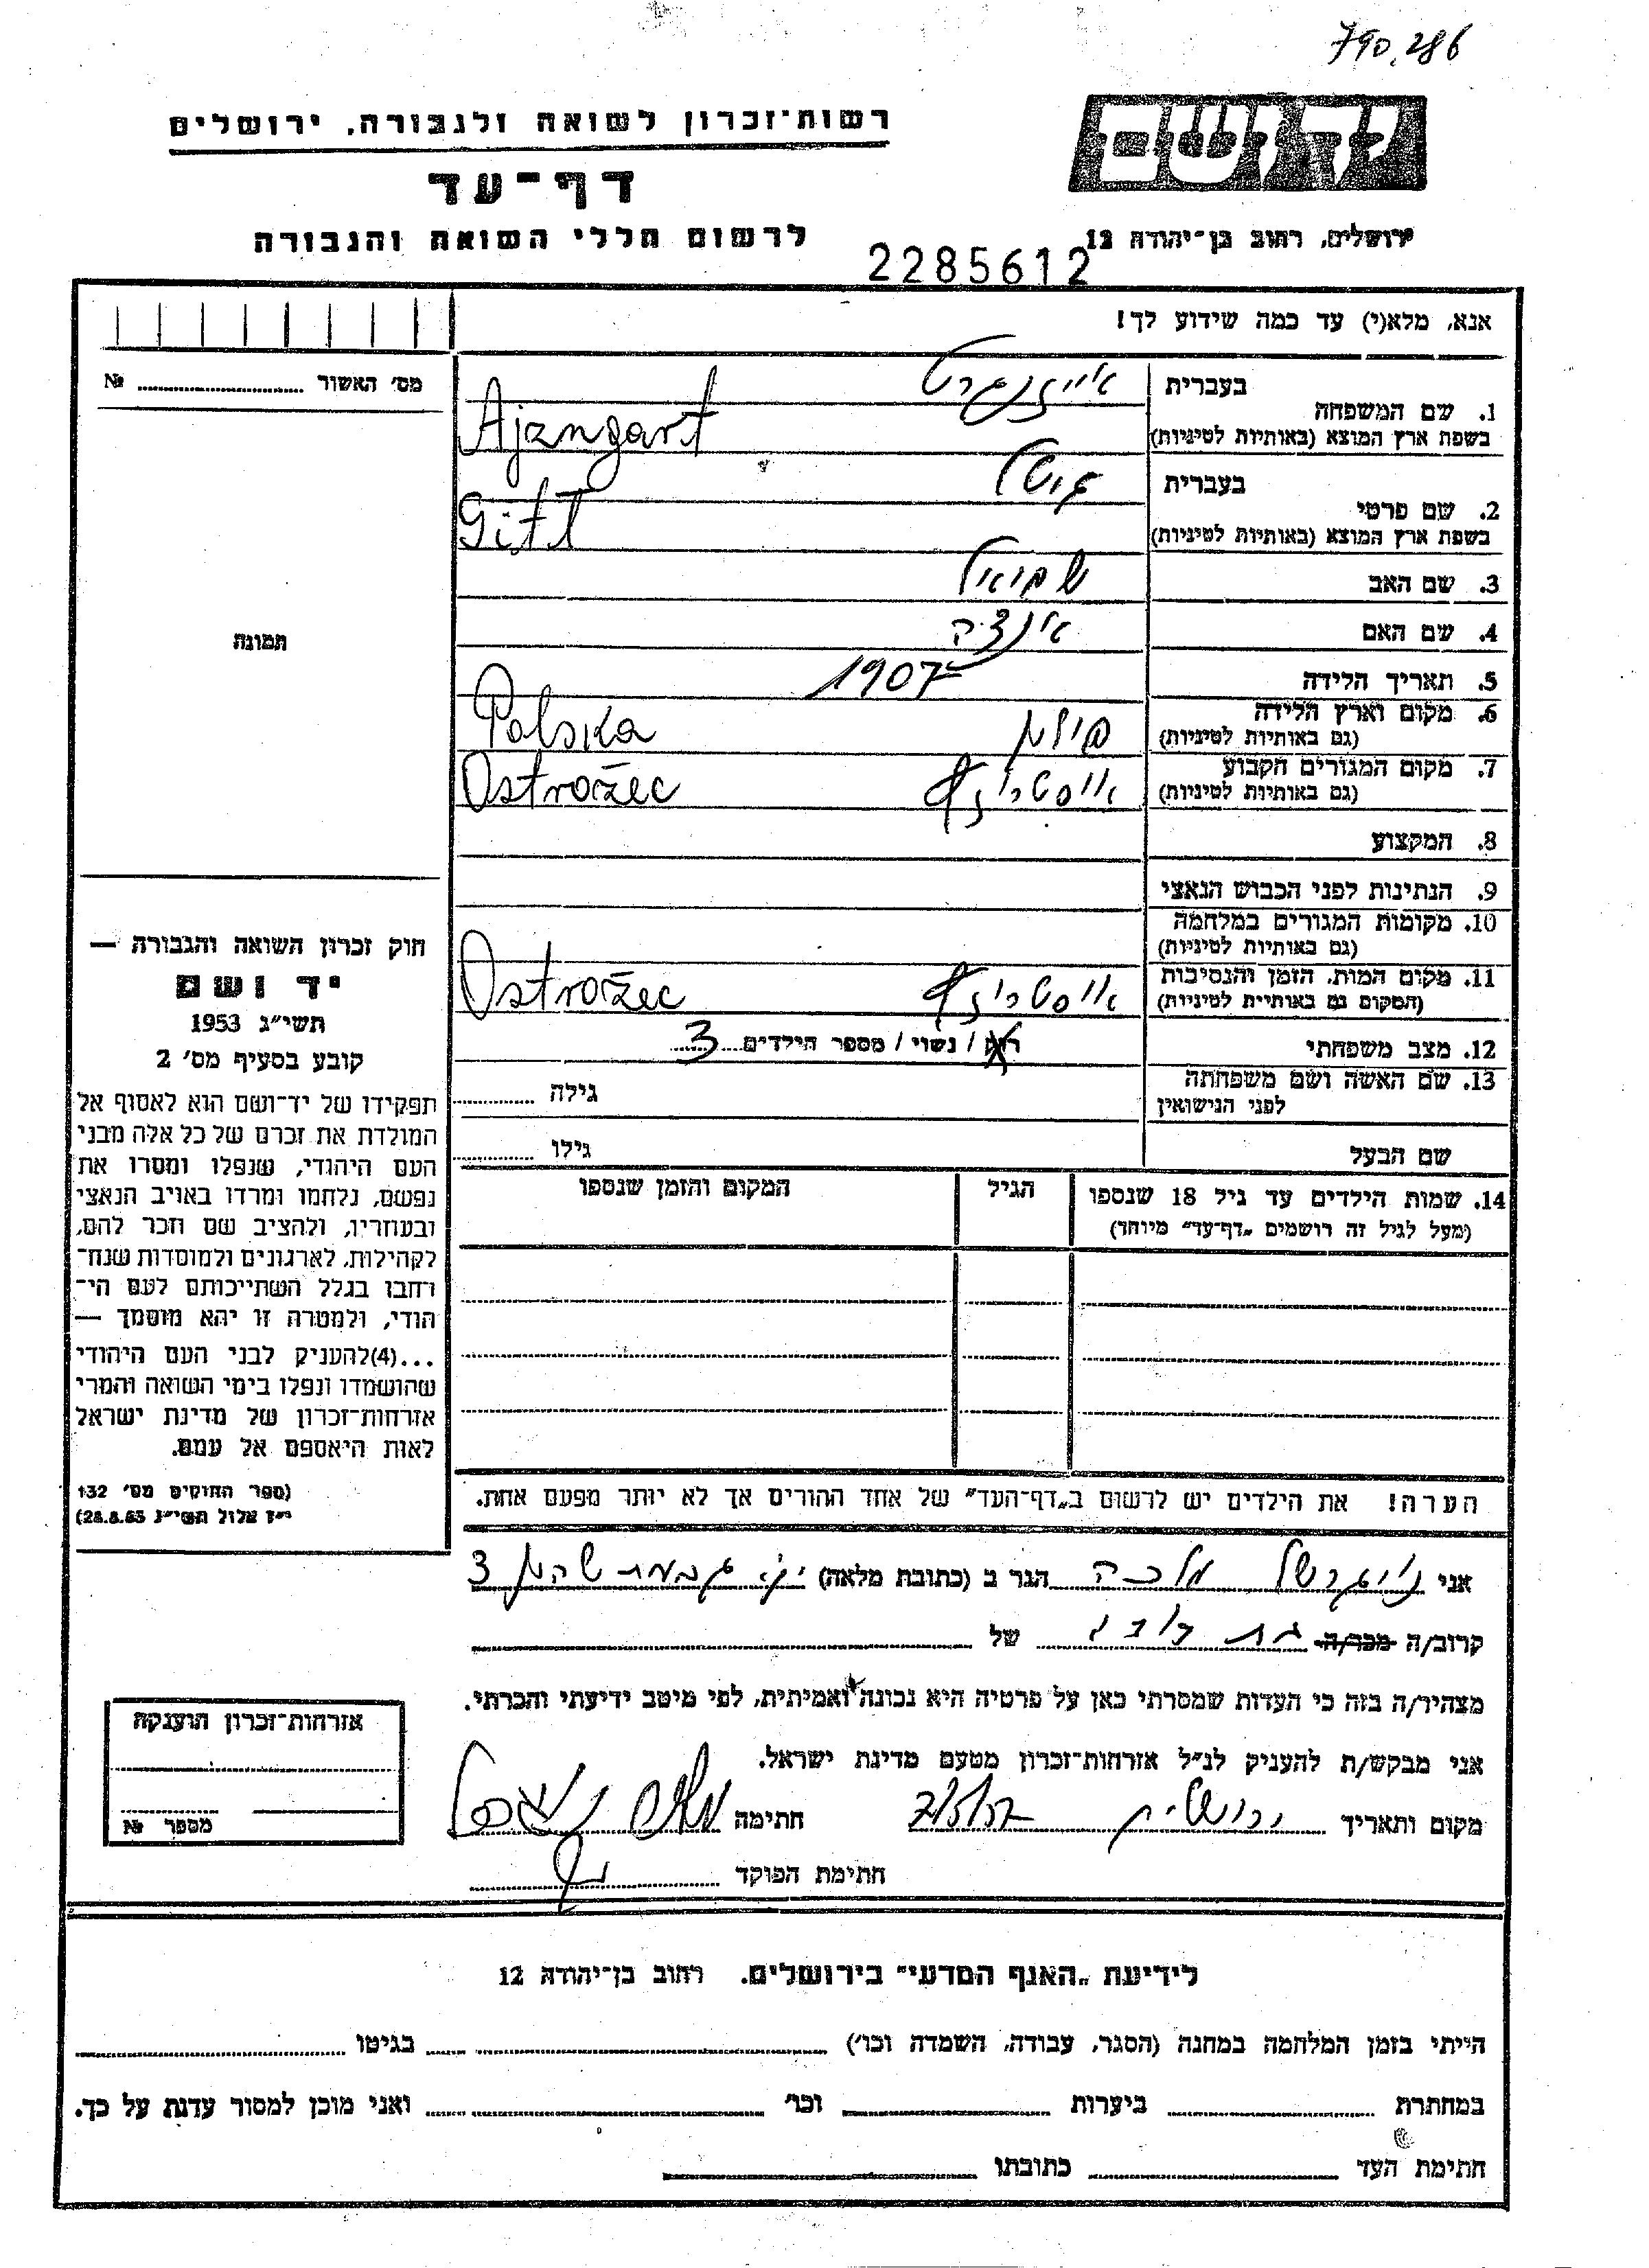 790,286
רשות־זכרון לשואה ולגבורה, ירושלים
יד ושם
דף־עד
לרשום חללי השואה והגבורה
ירושלים, רחוב בן־יהודה 12
2285612
אנא, מלא(י) עד כמה שידוע לך!
מס׳ האשור № 
בעברית אייזנגרט
1. שם המשפחה
בשפת ארץ המוצא (באותיות לטיניות) Ajzngart
בעברית גיטל
2. שם פרטי
בשפת ארץ המוצא (באותיות לטיניות) Gitl
3. שם האב שמואל
4. שם האם
תמונה
5. תאריך הלידה 1907
6. מקום וארץ הלידה
(גם באותיות לטיניות) פולין Polska
7. מקום המגורים הקבוע
(גם באותיות לטיניות) Ostrožec
8. המקצוע
9. הנתינות לפני הכבוש הנאצי
10. מקומות המגורים במלחמה
(גם באותיות לטיניות)
11. מקום המות, הזמן והנסיבות
(המקום גם באותיות לטיניות) Ostrožec
12. מצב משפחתי רוק / נשוי / מספר הילדים 3
13. שם האשה ושם משפחתה
לפני הנישואין גילה
שם הבעל גילו
14. שמות הילדים עד גיל 18 שנספו
(מעל לגיל זה רושמים „דף־עד״ מיוחד)
הגיל
המקום והזמן שנספו
חוק זכרון השואה והגבורה —
יד ושם
תשי״ג 1953
קובע בסעיף מס׳ 2
תפקידו של יד־ושם הוא לאסוף אל
המולדת את זכרם של כל אלה מבני
העם היהודי, שנפלו ומסרו את
נפשם, נלחמו ומרדו באויב הנאצי
ובעוזריו, ולהציב שם וזכר להם,
לקהילות, לארגונים ולמוסדות שנח־
רחבו בגלל השתייכותם לעם הי־
הודי, ולמטרה זו יהא מוסמך —
...(4)להעניק לבני העם היהודי
שהושמדו ונפלו בימי השואה והמרי
אזרחות־זכרון של מדינת ישראל
לאות היאספם אל עמם.
(ספר החוקים מס׳ 132
י״ז אלול תשי״ג 28.8.53)
הערה! את הילדים יש לרשום ב„דף־העד״ של אחד ההורים אך לא יותר מפעם אחת.
אני מלכה הגר ב (כתובת מלאה) 3
קרוב/ה מכר/ה בת דודה של
מצהיר/ה בזה כי העדות שמסרתי כאן על פרטיה היא נכונה ואמיתית, לפי מיטב ידיעתי והכרתי.
אני מבקש/ת להעניק לנ״ל אזרחות־זכרון מטעם מדינת ישראל.
מקום ותאריך ירושלים חתימה
חתימת הפוקד
אזרחות־זכרון הוענקה
מספר №
לידיעת „האגף המדעי״ בירושלים. רחוב בן־יהודה 12
הייתי בזמן המלחמה במחנה (הסגר, עבודה, השמדה וכו׳) בגיטו
במחתרת ביערות וכו׳ ואני מוכן למסור עדות על כך.
חתימת העד כתובתו